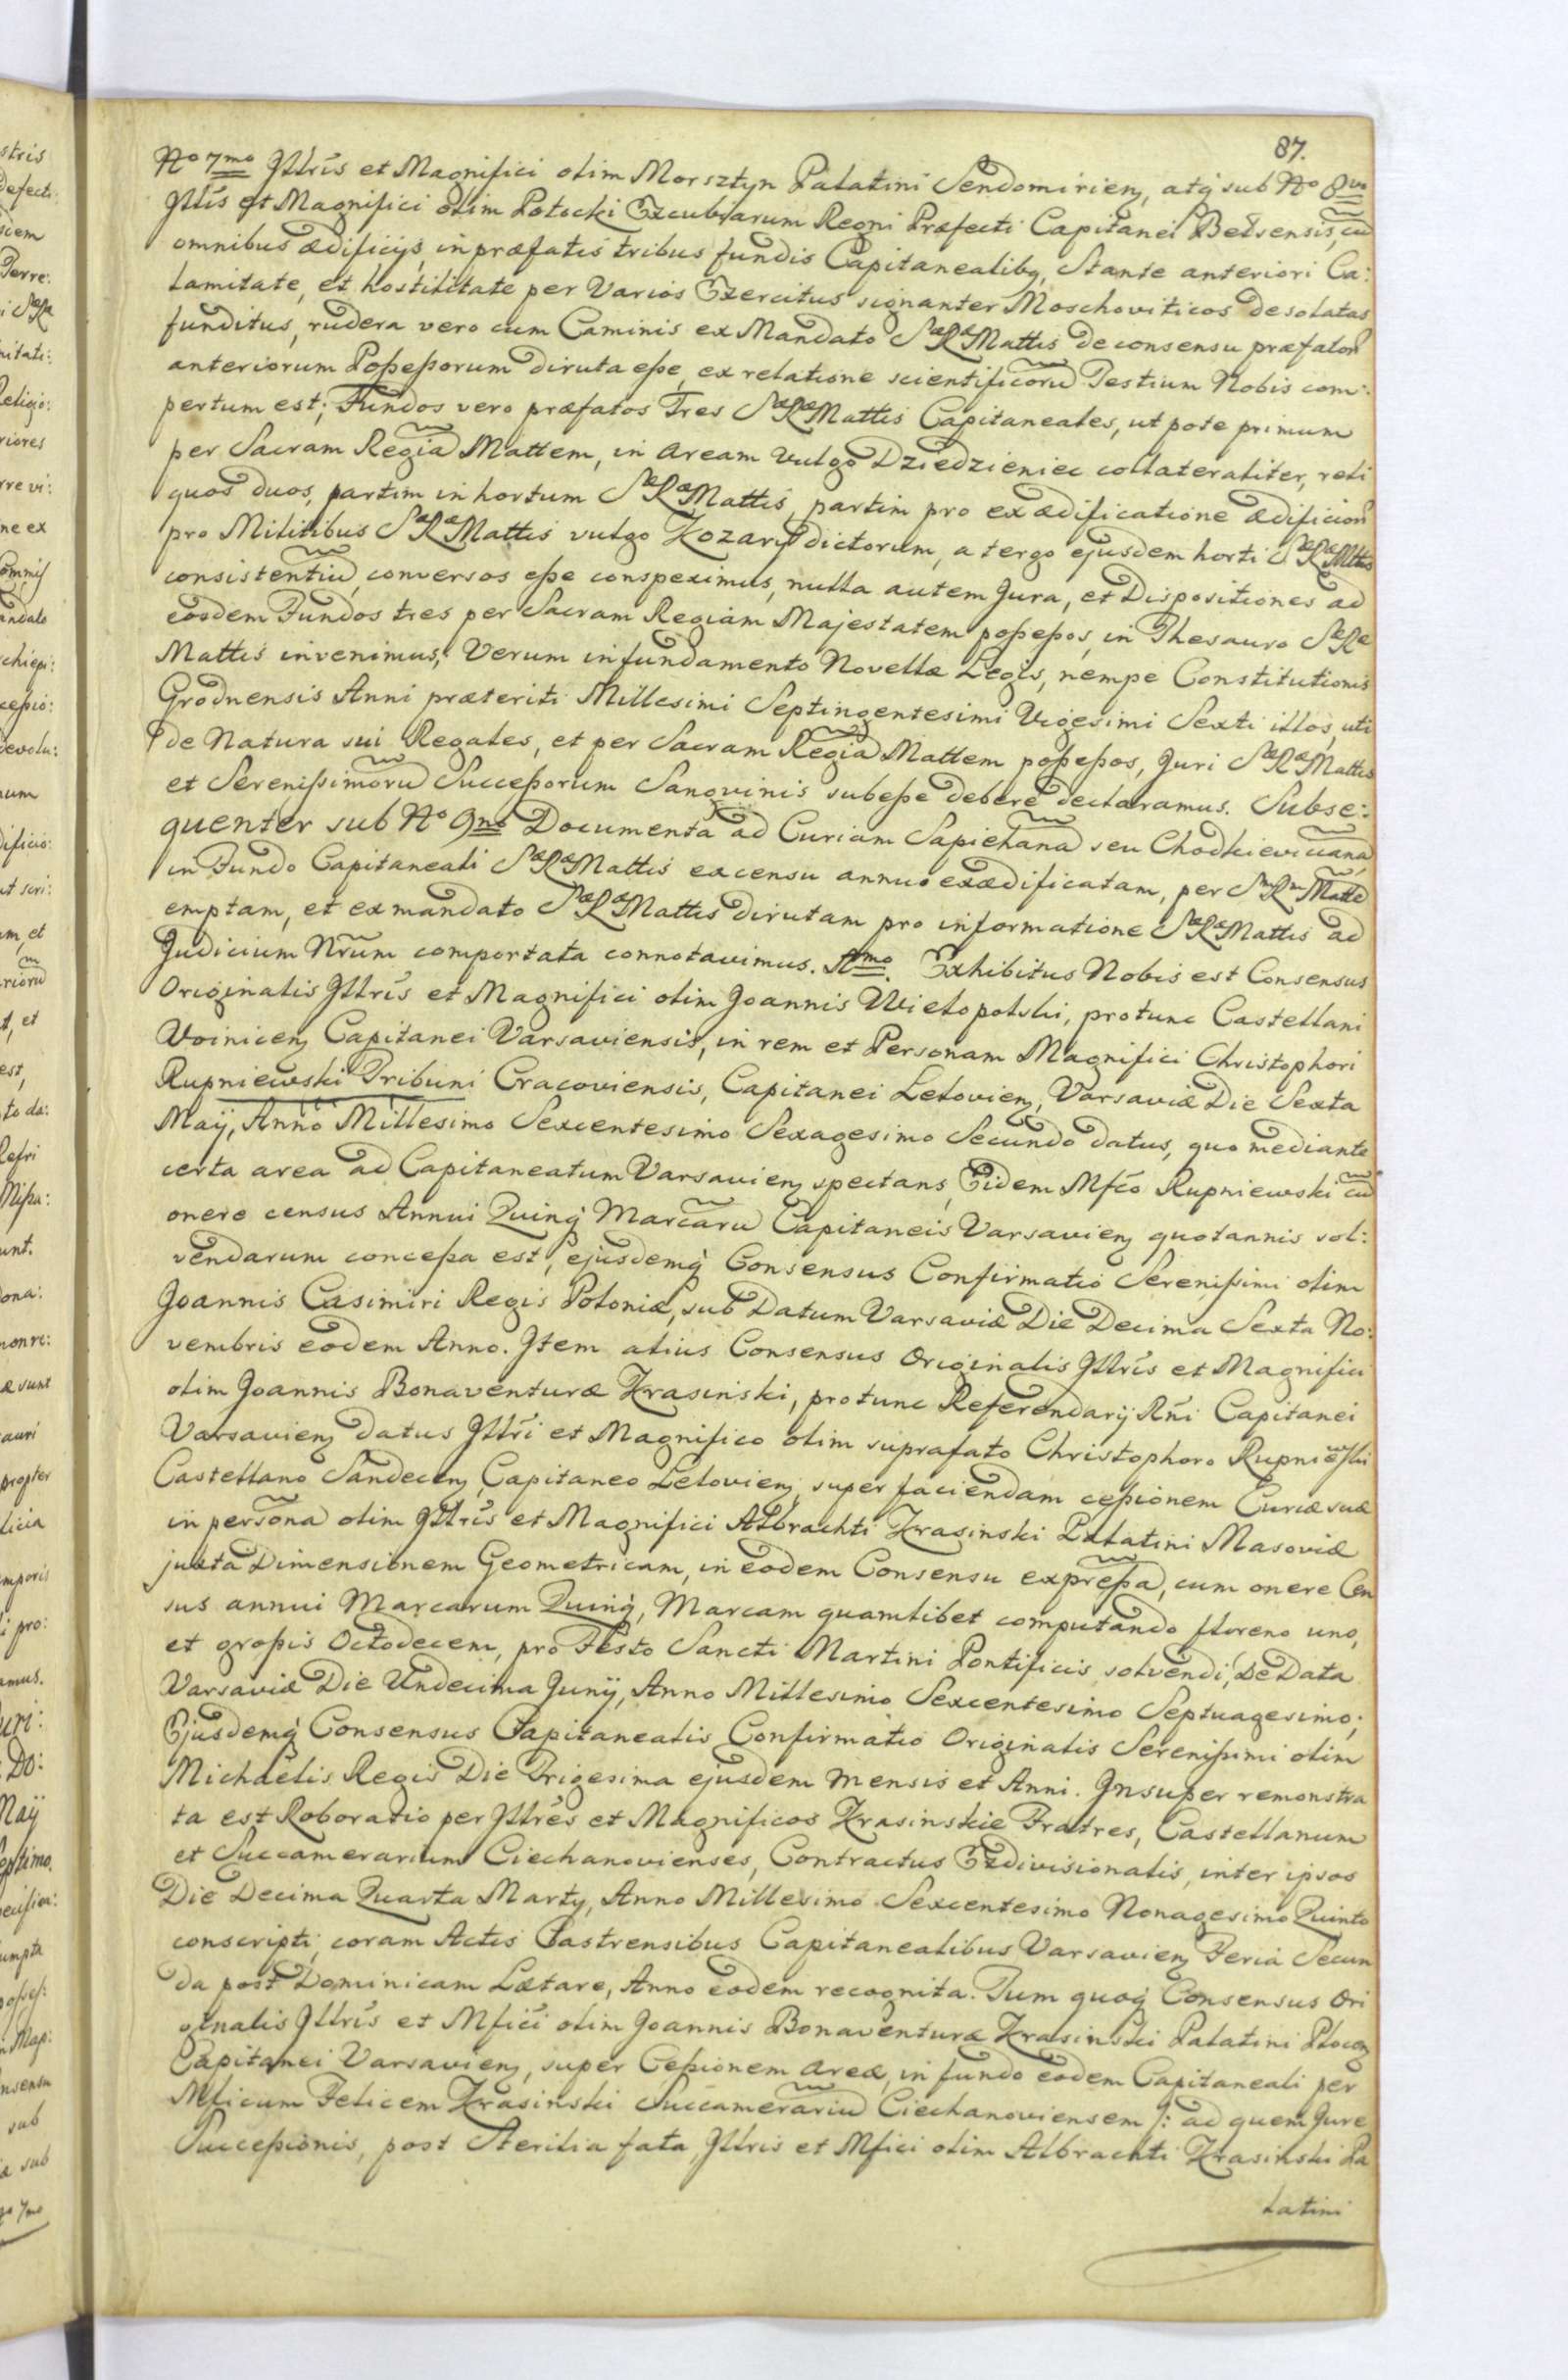 87.
No 7mo Jllris et Magnifici olim Morsztyn Palatini Sendomirien, atq sub No 8vo
Jllis et Magnifici olim Potocki Excubiarum Regni Præfecti Capitanei Belsensis, cu
omnibus ædificijs, in præfatis tribus fundis Capitanealibq, Stante anteriori Ca:
lamitate, et hostilitate per Varios Exercitus signanter Moschoviticos desolatas
funditus, rudera vero cum Caminis ex Mandato SæRæMattis de consensu præfator
anteriorum Poßeßorum diruta eße, ex relatione scientificoru Testium Nobis com:
pertum est; Fundos vero præfatos Tres SæRæMattis Capitaneales, ut pote primum
per Sacram Regia Mattem, in Aream vulgo Dziedzieniec collateraliter, reli
quos duos, partim in hortum SæRæMattis, partim pro exædificatione ædificior
pro Militibus SæRæMattis vulgo Kozary dictorum, a tergo ejusdem horti SæRæMttis
consistentiu, conversos eße conspeximus, nulla autem Jura, et Dispositiones ad
eosdem Fundos tres per Sacram Regiam Majestatem poßeßos, in Thesauro SæRæ
Mattis invenimus, Verum in fundamento Novellæ Legis, nempe Constitutionis
Grodnensis Anni præteriti Millesimi Septingentesimi Vigesimi Sexti illos, uti
de Natura sui Regales, et per Sacram Regia Mattem poßeßos, Juri SæRæMattis
et Serenißimoru Succeßorum Sangvinis subeße debere declaramus. Subse:
quenter sub No 9no Documenta ad Curiam Sapiehana seu Chodkieviciana
in Fundo Capitaneali SæRæMattis ex censu annuo exædificatam, per SmRmMatte
emptam, et ex mandato SæRæMattis dirutam pro informatione SæRæMattis ad
Judicium Nrum comportata connotavimus. Amo. Exhibitus Nobis est Consensus
Originalis Jllris et Magnifici olim Joannis Wielopolski, protunc Castellani
Voinicen, Capitanei Varsaviensis, in rem et Personam Magnifici Christophori
Rupniewski Tribuni Cracoviensis, Capitanei Lelovien, Varsaviæ Die Sexta
Maij, Anno Millesimo Sexcentesimo Sexagesimo Secundo datus, quo mediante
certa area ad Capitaneatum Varsavien spectans, Eidem Mfco Rupniewski cu
onere census Annui Quinq Marcaru Capitaneis Varsavien quotannis sol:
vendarum conceßa est, ejusdemq Consensus Confirmatio Serenißimi olim
Joannis Casimiri Regis Poloniæ, sub Datum Varsaviæ Die Decima Sexta No:
vembris eodem Anno. Jtem alius Consensus Originalis Jllris et Magnifici
olim Joannis Bonaventuræ Krasinski, protunc Referendarij Rni Capitanei
Varsavien datus Jllri et Magnifico olim suprafato Christophoro Rupniewski
Castellano Sandecen, Capitaneo Lelovien, super faciendam ceßionem Curiæ suæ
in persona olim Jllris et Magnifici Albrachti Krasinski Palatini Masoviæ
juxta Dimensionem Geometricam, in eodem Consensu expreßa, cum onere Cen
sus annui Marcarum Quinq, Marcam quamlibet computando floreno uno,
et großis Octodecem, pro Festo Sancti Martini Pontificis solvendi, De Data
Varsaviæ Die Undecima Junij, Anno Millesimo Sexcentesimo Septuagesimo;
Ejusdemq Consensus Capitanealis Confirmatio Originalis Serenißimi olim
Michaelis Regis Die Trigesima ejusdem mensis et Anni. Jnsuper remonstra
ta est Roboratio per Jllres et Magnificos Krasinskie Fratres, Castellanum
et Succamerarium Ciechanovienses, Contractus Exdivisionalis, inter ipsos
Die Decima Quarta Martij, Anno Millesimo Sexcentesimo Nonagesimo Quinto
conscripti, coram Actis Castrensibus Capitanealibus Varsavien, Feria Secun
da post Dominicam Lætare, Anno eodem recognita. Tum quoq Consensus Ori
ginalis Jllris et Mfici olim Joannis Bonaventuræ Krasinski Palatini Plocen
Capitanei Varsavien, super Ceßionem Areæ, in fundo eodem Capitaneali per
Mficum Felicem Krasinski Succamerariu Ciechanoviensem /: ad quem Jure
Succeßionis, post Sterilia fata, Jllris et Mfici olim Albrachti Krasinski Pa
latini